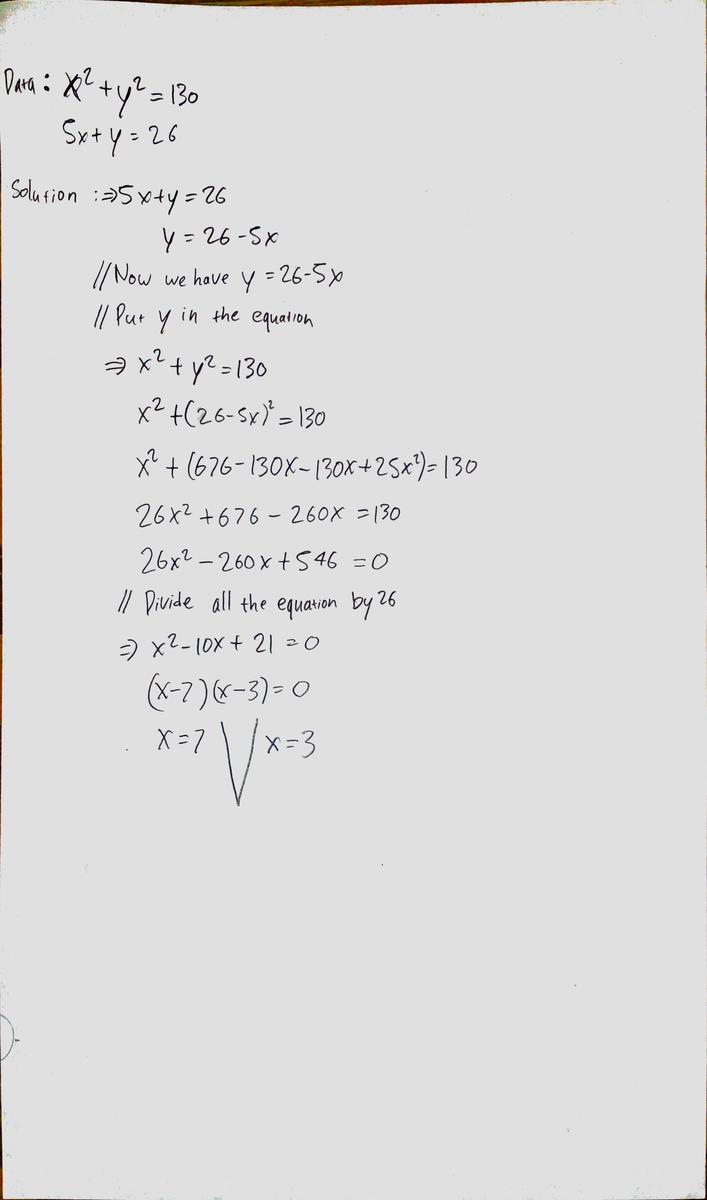 Data : x² + y² = 130
5x + y = 26
Solution : ⇒ 5x + y = 26
y = 26 - 5x
// Now we have y = 26-5x
// Put y in the equation
⇒ x² + y² = 130
x² + (26-5x)² = 130
x² + (676 - 130x - 130x + 25x²) = 130
26x² + 676 - 260x = 130
26x² - 260x + 546 = 0
// Divide all the equation by 26
⇒ x² - 10x + 21 = 0
(x-7)(x-3) = 0
x = 7 ∨ x = 3